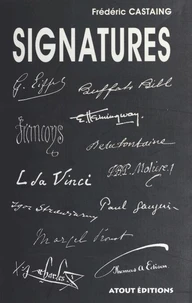 Frédéric CASTAING
SIGNATURES
G. Eiffel Buffalo Bill
E. Hemingway
Francoys
De la fontaine
J.B.P. Moliere
L da Vinci
Igor Strawinsky Paul Gauguin
Marcel Proust
Charles
Thomas A Edison
ATOUT ÉDITIONS